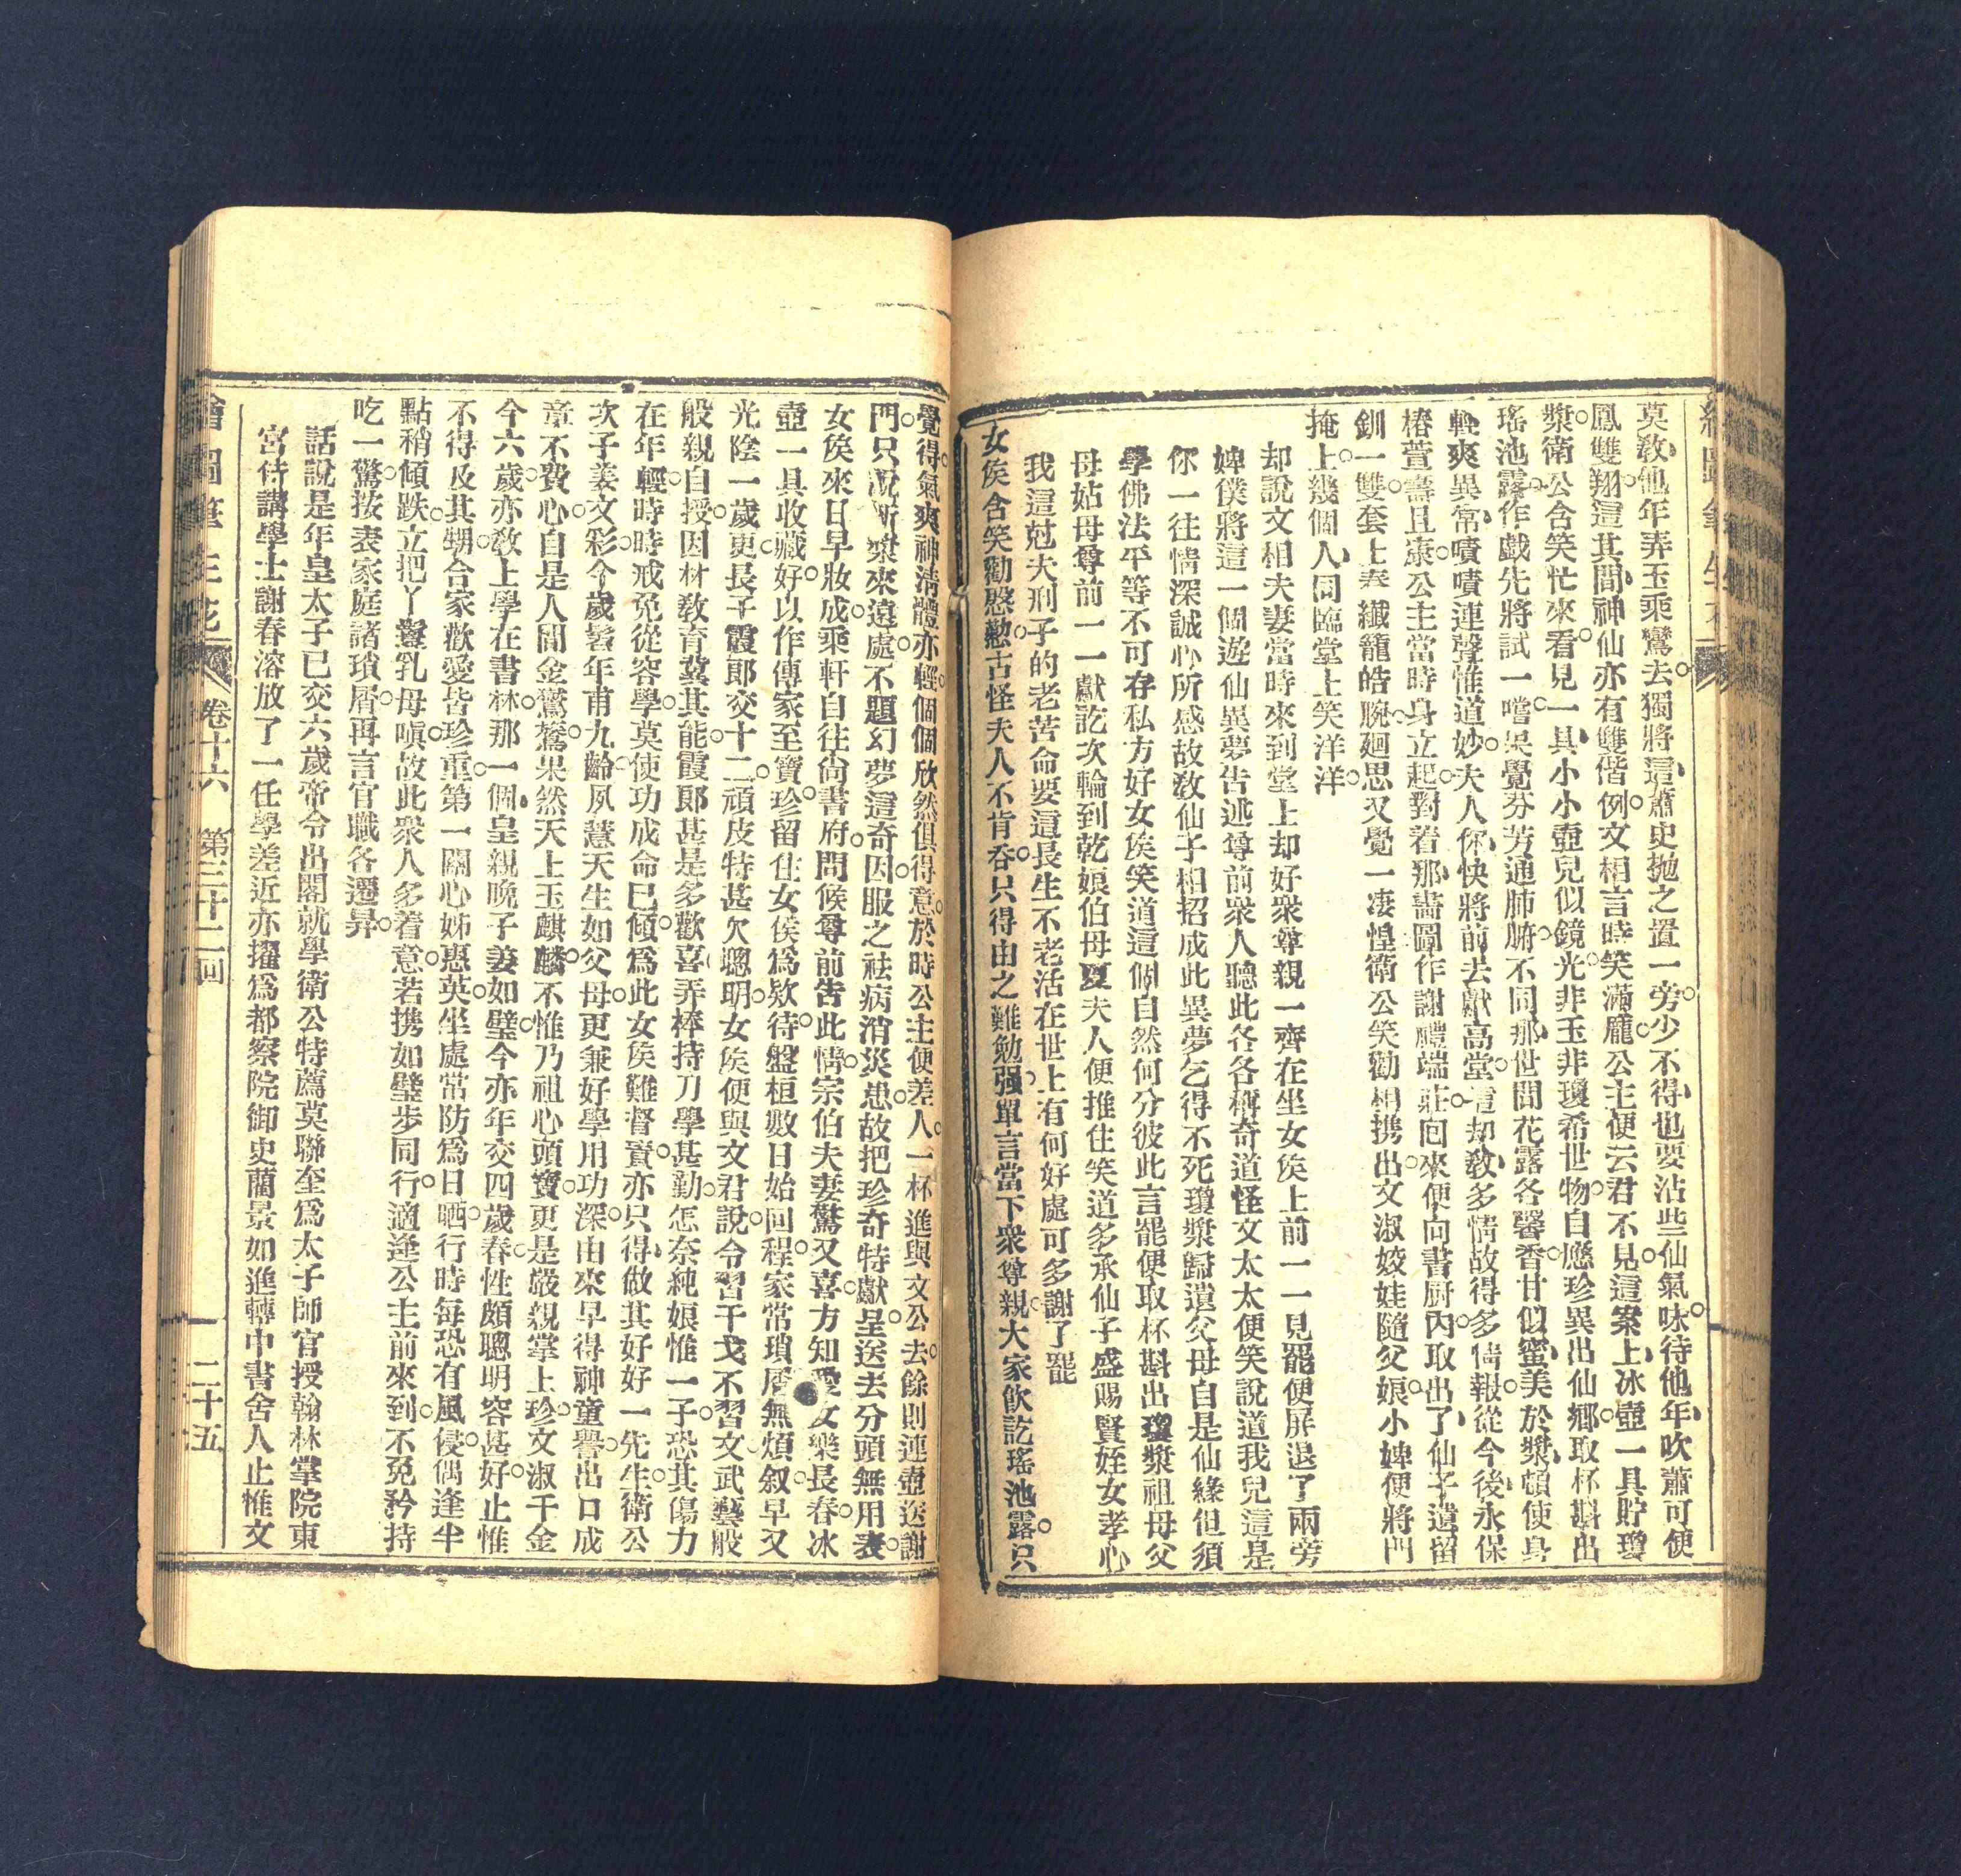 莫敎他年弄玉乘鸞去獨將這蕭史拋之置一旁少不得也要沾些仙氣味待他年吹蕭可便
鳳雙翔這其間神仙亦有雙偕例文相言時笑滿龐公主便云君不見這案上冰壺一具貯瓊
漿衛公含笑忙來看見一具小小壺兒似鏡光非玉非瓊希世物自應珍異出仙鄉取杯斟出
瑤池露作戲先將試一嚐果覺芬芳通肺腑不同那世間花露各馨香甘似蜜美於漿頓使身
輕爽異常嘖嘖連聲惟道妙夫人你快將前去獻高堂這却敎多情故得多情報從今後永保
椿萱壽且康公主當時身立起對着那畵圖作謝禮端莊囘來便向書厨內取出了仙子遺留
釧一雙套上春纖籠皓腕廻思又覺一凄惶衛公笑勸相携出文淑姣娃隨父娘小婢便將門
掩上幾個人同臨堂上笑洋洋
却說文相夫妻當時來到堂上却好衆尊親一齊在坐女侯上前一一見罷便屏退了兩旁
婢僕將這一個遊仙異夢吿述尊前衆人聽此各各稱奇道怪文太太便笑說道我兒這是
你一往情深誠心所感故敎仙子相招成此異夢乞得不死瓊漿歸遺父母自是仙緣但須
學佛法平等不可存私方好女侯笑道這個自然何分彼此言罷便取杯斟出瓊漿祖母父
母姑母尊前一一獻訖次輪到乾娘伯母夏夫人便推住笑道多承仙子盛賜賢姪女孝心
我這尅夫刑子的老苦命要這長生不老活在世上有何好處可多謝了罷
女侯含笑勸慇懃古怪夫人不肯呑只得由之難勉强單言當下衆尊親大家飲訖瑤池露只
覺得氣爽神淸體亦輕個個欣然俱得意於時公主便差人一杯進與文公去餘則連壺送謝
門只說新泉來遠處不題幻夢這奇因服之袪病消災患故把珍奇特獻呈送去分頭無用表
女侯來日早妝成乘軒自往尙書府問候尊前吿此情宗伯夫妻驚又喜方知愛女樂長春冰
壺一具收藏好以作傳家至寶珍留住女侯爲欵待盤桓數日始回程家常瑣屑無煩叙早又
光陰一歲更長子霞郞交十二頑皮特甚欠聰明女侯便與文君說令習干戈不習文武藝般
般親自授因材敎育冀其能霞郞甚是多歡喜弄棒持刀學甚勤怎奈純娘惟一子恐其傷力
在年輕時時戒免從容學莫使功成命已傾爲此女侯難督責亦只得做其好好一先生衛公
次子姜文彩今歲髫年甫九齡夙慧天生如父母更兼好學用功深由來早得神童譽出口成
章不費心自是人間金鸑鷟果然天上玉麒麟不惟乃祖心頭寶更是嚴親掌上珍文淑千金
今六歲亦敎上學在書林那一個皇親晩子姜如璧今亦年交四歲春性頗聰明容甚好止惟
不得及其朞合家歡愛皆珍重第一關心姊惠英坐處常防爲日晒行時每恐有風侵偶逢半
點稍傾跌立把丫鬟乳母嗔故此衆人多着意若携如璧步同行適逢公主前來到不免矜持
吃一驚按表家庭諸瑣屑再言官職各遷昇
話說是年皇太子已交六歲帝令出閣就學衛公特薦莫聯奎爲太子師官授翰林掌院東
宮侍講學士謝春溶放了一任學差近亦擢爲都察院御史藺景如進轉中書舍人止惟文
繪圖筆生花 卷十六 第三十二回 二十五